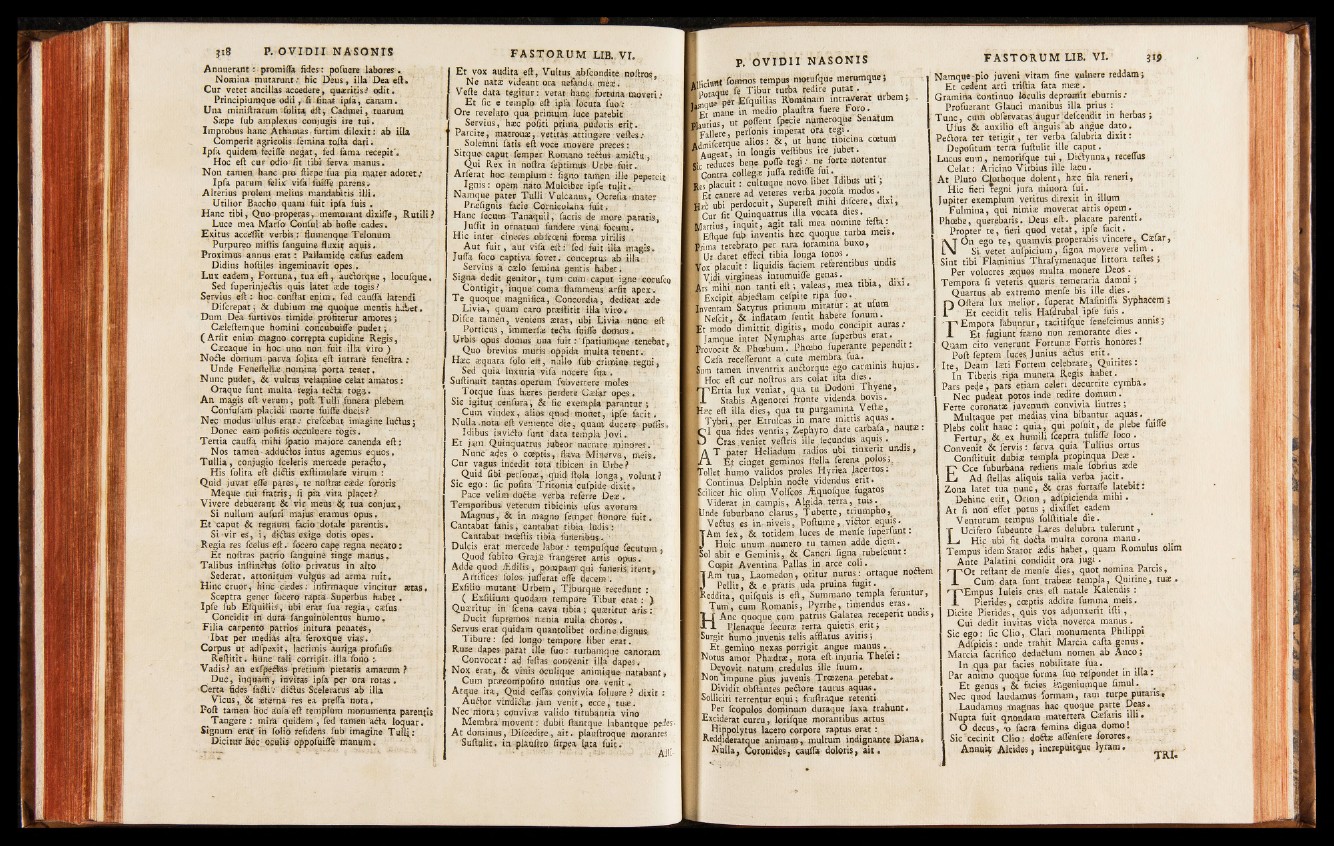 318 P. OVIDII NASONIS
Annuerant: promissa fides: posuere labores.
Nomina mutarunt: hic Deus, illa Dea est.
Cur vetet ancillas accedere, quæritis? odit.
Principiumque odii, si sinat ipsa, canam.
Una ministrarum solita est, Cadmei, tuarum
Sæpe sub amplexus conjugis ire tui.
Improbus hanc Athamas furtim dilexit: ab illa
Comperit agricolis semina tosta dari.
Ipsa quidem fecisse negat, sed fama recepit.
Hoc est cur odio sit tibi serva manus.
Non tamen hanc pro stirpe sua pia mater adoret:
Ipsa parum felix visa fuisse parens.
Alterius prolem melius mandabitis illi.
Utilior Baccho quam fuit ipsa suis.
Hanc tibi, Quo properas, memorant dixisse, Rutili?
Luce mea Marso Consul ab hoste cades.
Exitus accessit verbis: flumenque Telonum
Purpureo mistis sanguine fluxit aquis.
Proximus annus erat: Pallantide cæsus eadem
Didius hostiles ingeminavit opes.
Lux eadem, Fortuna, tua est, auctorque, locusque.
Sed superinjectis quis latet æde togis?
Servius est: hoc constat enim. sed caussa latendi
Discrepat; & dubium me quoque mentis habet.
Dum Dea furtivos timide profitetur amores;
Cælestemque homini concubuisse pudet;
(Arsit enim magno correpta cupidine Regis,
Cæcaque in hoc uno non fuit illa viro)
Nocte domum parva solita est intrare fenestra:
Unde Fenestellæ nomina porta tenet.
Nunc pudet, & vultus velamine celat amatos:
Oraque sunt multa regia tecta toga.
An magis est verum, post Tulli funera plebem
Confusam placidi morte fuisse ducis?
Nec modus ullus erat: crescebat imagine luctus;
Donec eam positis occuluere togis.
Tertia caussa mihi spatio majore canenda est:
Nos tamen adductos intus agemus equos.
Tullia, conjugio sceleris mercede peracto,
His solita est dictis exstimulare virum:
Quid juvat esse pares, te nostræ cæde sororis
Meque tui fratris, si pia vita placet?
Vivere debuerant & vir meus & tua conjux,
Si nullum ausuri majus eramus opus.
Et caput & regnum facio dotale parentis.
Si vir es, i, dictas exige dotis opes.
Regia res scelus est. socero cape regna necato:
Et nostras patrio sanguine tinge manus.
Talibus instinctus solio privatus in alto
Sederat. attonitum vulgus ad arma ruit.
Hinc cruor, hinc cædes: infirmaque vincitur ætas.
Sceptra gener socero rapta Superbus habet.
Ipse sub Esquiliis, ubi erat sua regia, cæsus
Concidit in dura sanguinolentus humo.
Filia carpento patrios initura penates,
Ibat per medias alta feroxque vias.
Corpus ut adspexit, lacrimis auriga profusis
Restitit. hunc tali corripit illa sono:
Vadis? an exspectas pretium pietatis amarum?
Duc, inquam, invitas ipsa per ora rotas.
Certa fides facti: dictus Sceleratus ab illa
Vicus, & æterna res ea pressa nota.
Post tamen hoc ausa est templum monumenta parentis
Tangere: mira quidem, sed tamen acta loquar.
Signum erat in solio residens sub imagine Tulli:
Dicitur hoc oculis opposuisse manum.
FASTORUM LIB. VI.
Et vox audita est, Vultus abscondite nostros,
Ne natæ videant ora nefanda meæ.
Veste data tegitur: vetat hanc fortuna moveri:
Et sic e templo est ipsa locuta suo:
Ore revelato qua primum luce patebit
Servius, hæc positi prima pudoris erit.
Parcite, matronæ, vetitas attingere vestes:
Solemni satis est voce movere preces:
Sitque caput semper Romano tectus amictu,
Qui Rex in nostra septimus Urbe fuit.
Arserat hoc templum: signo tamen ille pepercit
Ignis: opem nato Mulciber ipse tulit.
Namque pater Tulli Vulcanus, Ocresia mater
Præsignis facie Corniculana fuit.
Hanc secum Tanaquil, sacris de more paratis,
Jussit in ornatum fundere vina focum.
Hic inter cineres obscœni forma virilis
Aut fuit, aut visa est: sed fuit illa magis.
Jussa foco captiva fovet. conceptus ab illa
Servius a cælo semina gentis habet.
Signa dedit genitor, tum cum caput igne corusco
Contigit, inque coma flammeus arsit apex.
Te quoque magnifica, Concordia, dedicat æde
Livia, quam caro præstitit illa viro.
Disce tamen, veniens ætas, ubi Livia nunc est
Porticus, immensæ tecta fuisse domus.
Urbis opus domus una fuit: spatiumque tenebat,
Quo brevius muris oppida multa tenent.
Hæc æquata solo est, nullo sub crimine regni,
Sed quia luxuria visa nocere sua.
Sustinuit tantas operum subvertere moles
Totque suas hæres perdere Cæsar opes.
Sic igitur censura, & sic exempla parantur;
Cum vindex, alios quod monet, ipse facit.
Nulla nota est veniente die, quam ducere possis.
Idibus invicto sunt data templa Jovi.
Et jam Quinquatrus jubeor narrare minores.
Nunc ades o cœptis, flava Minerva, meis.
Cur vagus incedit tota tibicen in Urbe?
Quid sibi personæ, quid stola longa, volunt?
Sic ego: sic posita Tritonia cuspide dixit.
Pace velim doctæ verba referre Deæ.
Temporibus veterum tibicinis usus avorum
Magnus, & in magno semper honore fuit.
Cantabat fanis, cantabat tibia ludis:
Cantabat mœstis tibia funeribus.
Dulcis erat mercede labor: tempusque secutum,
Quod subito Grajæ frangeret artis opus.
Adde quod Ædilis, pompam qui funeris irent,
Artifices solos jusserat esse decem.
Exsilio mutant Urbem, Tiburque recedunt:
(Exsilium quodam tempore Tibur erat:)
Quæritur in scena cava tibia; quæritur aris:
Ducit supremos nænia nulla choros.
Servus erat quidam quantolibet ordine dignus,
Tibure: sed longo tempore liber erat.
Rure dapes parat ille suo: turbamque canoram
Convocat: ad festas convenit illa dapes.
Nox erat, & vinis oculique animique natabant,
Cum præcomposito nuntius ore venit.
Atque ita, Quid cessas convivia solvere? dixit:
Auctor vindictæ jam venit, ecce, tuæ.
Nec mora; convivæ valido titubantia vino
Membra movent: dubii stantque labantque pedes.
At dominus, Discedite, ait. plaustroque morantes
Sustulit. in plaustro sirpea lata fuit.
All-
P. OVIDII NASONIS
Alliciunt somnos tempus motusque merumque;
Potaque se Tibur turba redire putat.
Jamque per Esquilias Romanam intraverat urbem;
Et mane in medio plaustra fuere Foro.
Plautius, ut possent specie numeroque Senatum
Fallere, personis imperat ora tegi.
Admiscetque alios: &, ut hunc tibicina cœtum
Augeat, in longis vestibus ire jubet.
Sic reduces bene posse tegi: ne forte notentur
Contra collegæ jussa redisse sui.
Res placuit: cultuque novo licet Idibus uti;
Et canere ad veteres verba jocosa modos.
Hæc ubi perdocuit, Superest mihi discere, dixi,
Cur sit Quinquatrus illa vocata dies.
Martius, inquit, agit tali mea nomine festa:
Estque sub inventis hæc quoque turba meis.
Prima terebrato per rara foramina buxo,
Ut daret effeci tibia longa sonos.
Vox placuit: liquidis faciem referentibus undis
Vidi virgineas intumuisse genas.
Ars mihi non tanti est; valeas, mea tibia, dixi.
Excipit abjectam cespite ripa suo.
Inventam Satyrus primum miratur: at usum
Nescit, & inflatam sentit habere sonum.
Et modo dimittit digitis, modo concipit auras:
Jamque inter Nymphas arte superbus erat.
Provocat & Phœbum. Phœbo superante pependit:
Cæsa recesserunt a cute membra sua.
Sum tamen inventrix auctorque ego carminis hujus.
Hoc est cur nostros ars colat ista dies.
TErtia lux veniat, qua tu Dodoni Thyene,
Stabis Agenorei fronte videnda bovis.
Hæc est illa dies, qua tu purgamina Vestæ,
Tybri, per Etruscas in mare mittis aquas.
SI qua fides ventis; Zephyro date carbasa, nautæ:
Cras veniet vestris ille secundus aquis.
AT pater Heliadum radios ubi tinxerit undis,
Et cinget geminos stella serena polos;
Tollet humo validos proles Hyriea lacertos:
Continua Delphin nocte videndus erit.
Scilicet hic olim Volscos Æquosque fugatos
Viderat in campis, Algida terra, tuis.
Unde suburbano clarus, Tuberte, triumpho,
Vectus es in niveis, Postume, victor equis.
JAm sex, & totidem luces de mense supersunt:
Huic unum numero tu tamen adde diem.
Sol abit e Geminis, & Cancri signa rubescunt:
Cœpit Aventina Pallas in arce coli.
JAm tua, Laomedon, oritur nurus: ortaque noctem
Pellit, & e pratis uda pruina fugit.
Reddita, quisquis is est, Summano templa feruntur,
Tum, cum Romanis, Pyrrhe, timendus eras.
HAnc quoque cum patriis Galatea receperit undis,
Plenaque securæ terra quietis erit;
Surgit humo juvenis telis afflatus avitis;
Et gemino nexas porrigit angue manus.
Notus amor Phædræ, nota est injuria Thesei:
Devovit natum credulus ille suum.
Non impune pius juvenis Trœzena petebat.
Dividit obstantes pectore taurus aquas.
Solliciti terrentur equi: frustraque retenti
Per scopulos dominum duraque saxa trahunt.
Exciderat curru, lorisque morantibus artus
Hippolytus lacero corpore raptus erat:
Reddideratque animam, multum indignante Diana.
Nulla, Coronides, caussa doloris, ait.
FASTORUM LIB. VI. 319
Namque pio juveni vitam sine vulnere reddam;
Et cedent arti tristia fata meæ.
Gramina continuo loculis depromit eburnis:
Profuerant Glauci manibus illa prius:
Tunc, cum observatas augur descendit in herbas;
Usus & auxilio est anguis ab angue dato.
Pectora ter tetigit, ter verba salubria dixit:
Depositum terra sustulit ille caput.
Lucus eum, nemorisque tui, Dictynna, recessus
Celat: Aricino Virbius ille lacu.
At Pluto Clothoque dolent, hæc fila reneri,
Hic fieri regni jura minora sui.
Jupiter exemplum veritus direxit in illum
Fulmina, qui nimiæ moverat artis opem.
Phœbe, querebaris. Deus est. placare parenti.
Propter te, fieri quod vetat, ipse facit.
NOn ego te, quamvis properabis vincere, Cæsar,
Si vetet auspicium, signa movere velim.
Sint tibi Flaminius Thrasymenaque littora testes;
Per volucres æquos multa monere Deos.
Tempora si veteris quæris temeraria damni;
Quartus ab extremo mense bis ille dies.
POstera lux melior. superat Masinissa Syphacem;
Et cecidit telis Hasdrubal ipse suis.
TEmpora labuntur, tacitisque senescimus annis;
Et fugiunt fræno non remorante dies.
Quam cito venerunt Fortunæ Fortis honores!
Post septem luces Junius actus erit.
Ite, Deam læti Fortem celebrate, Quirites:
In Tiberis ripa munera Regis habet.
Pars pede, pars etiam celeri decurrite cymba.
Nec pudeat potos inde redire domum.
Ferte coronatæ juvenum convivia lintres;
Multaque per medias vina bibantur aquas.
Plebs colit hanc: quia, qui posuit, de plebe fuisse
Fertur, & ex humili sceptra tulisse loco.
Convenit & servis: serva quia Tullius ortus
Constituit dubiæ templa propinqua Deæ.
ECce suburbana rediens male sobrius æde
Ad stellas aliquis talia verba jacit.
Zona latet tua nunc, & cras fortasse latebit:
Dehinc erit, Orion, adspicienda mihi.
At si non esset potus; dixisset eadem
Venturum tempus solstitiale die.
LUcifero subeunte Lares delubra tulerunt,
Hic ubi fit docta multa corona manu.
Tempus idem Stator ædis habet, quam Romulus olim
Ante Palatini condidit ora jugi.
TOt restant de mense dies, quot nomina Parcis,
Cum data sunt trabeæ templa, Quirine, tuæ.
TEmpus Iuleis cras est natale Kalendis:
Pierides, cœptis addite summa meis.
Dicite Pierides, quis vos adjunxerit isti,
Cui dedit invitas victa noverca manus.
Sic ego: sic Clio, Clari monumenta Philippi
Adspicis: unde trahit Marcia casta genus.
Marcia sacrifico deductum nomen ab Anco;
In qua par facies nobilitate sua.
Par animo quoque forma suo respondet in illa:
Et genus, & facies ingeniumque simul.
Nec quod laudamus formam, tam turpe putaris.
Laudamus magnas hac quoque parte Deas.
Nupta fuit quondam matertera Cæsaris illi.
O decus, o sacra femina digna domo!
Sic cecinit Clio: doctæ assensere sorores.
Annuit Alcides, increpuitque lyram.
TRI-